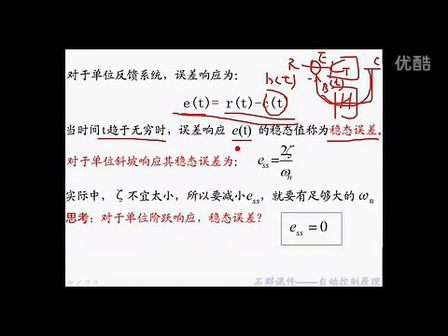 优酷
对于单位反馈系统，误差响应为：
R E C
B(t)
b(t)
e(t)= r(t)-c(t)
当时间t趋于无穷时，误差响应 e(t) 的稳态值称为稳态误差。
对于单位斜坡响应其稳态误差为： e_ss = 2ζ/ω_n
实际中，ζ 不宜太小，所以要减小e_ss，就要有足够大的 ω_n
思考：对于单位阶跃响应，稳态误差？ e_ss = 0
石群课件——自动控制原理